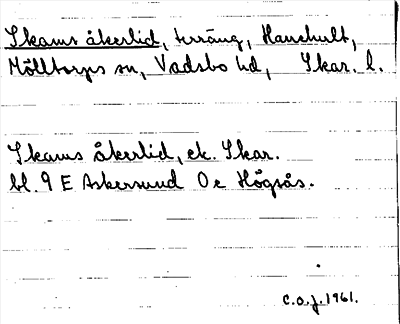 Skams åkerlid, terräng, Hanehult,
Mölltorps sn, Vadsbo hd, Skar. l.
Skams åkerlid, ek. Skar.
bl. 9 E Askersund 0e Högsås.
C.O.J. 1961.